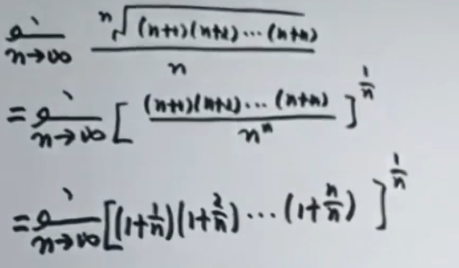 lim n→∞ ⁿ√((n+1)(n+2)⋯(n+n)) / n
= lim n→∞ [ (n+1)(n+2)⋯(n+n) / nⁿ ]^(1/n)
= lim n→∞ [(1+1/n)(1+2/n)⋯(1+n/n)]^(1/n)